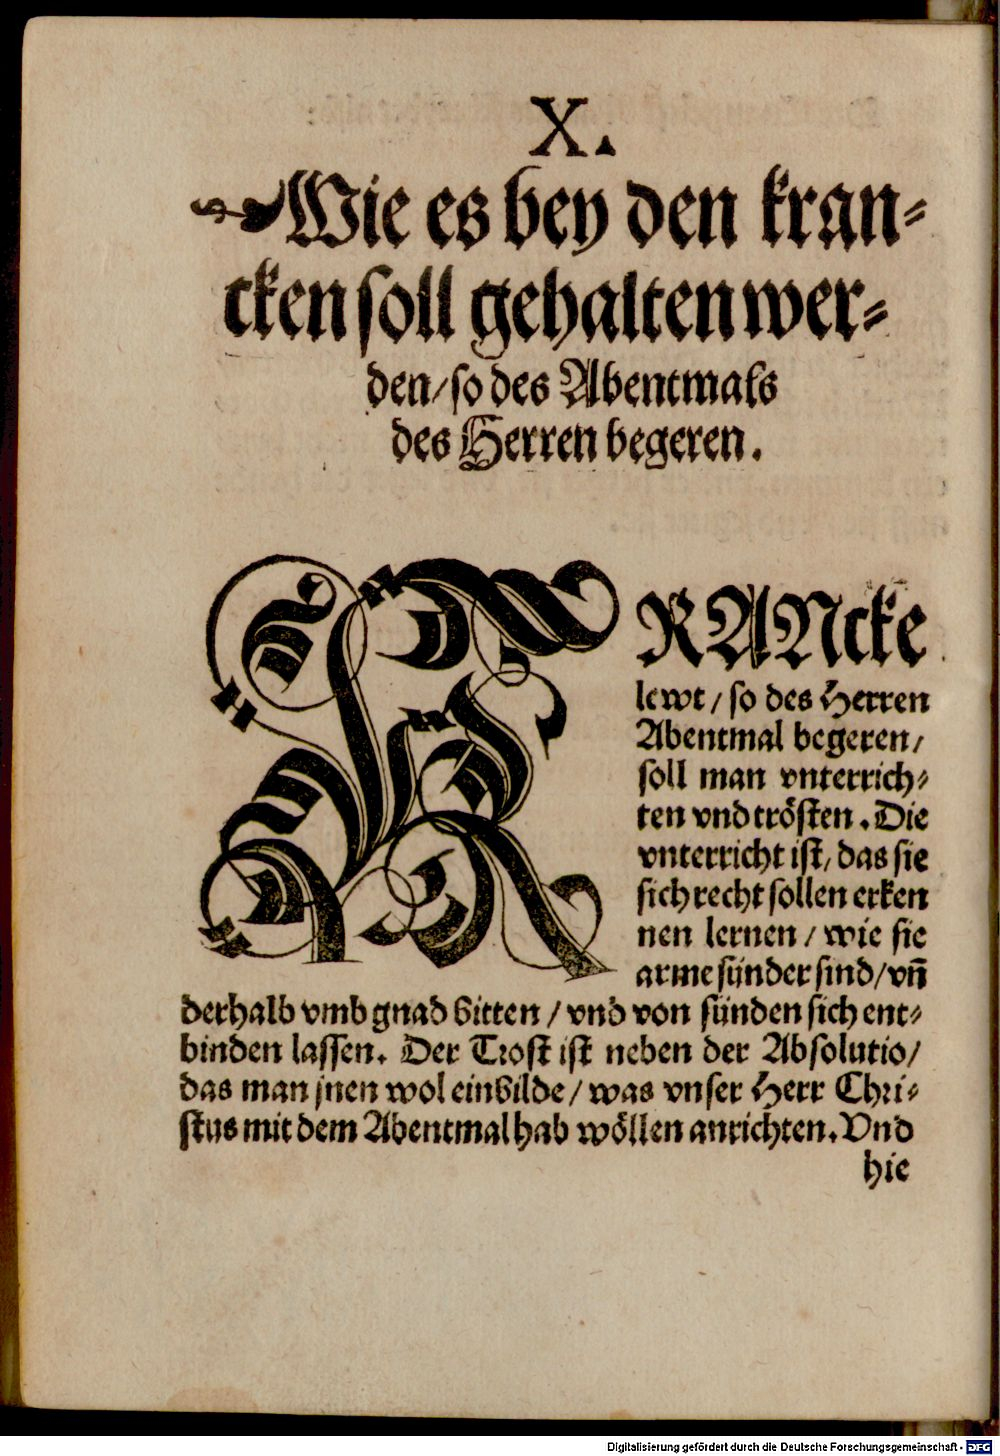 X.
Wie es bey den kran⸗
cken soll gehalten wer⸗
den/ so des Abentmals
des Herren begeren.
KRANcke
lewt/ so des Herren
Abentmal begeren/
soll man vnterrich⸗
ten vnd trösten. Die
vnterricht ist/ das sie
sich recht sollen erken
nen lernen/ wie sie
arme sünder sind/ vñ
derhalb vmb gnad bitten/ vnd von sünden sich ent⸗
binden lassen. Der Trost ist neben der Absolutio/
das man jnen wol einbilde/ was vnser Herr Chri⸗
stus mit dem Abentmal hab wöllen anrichten. Vnd
hie
Digitalisierung gefördert durch die Deutsche Forschungsgemeinschaft - DFG